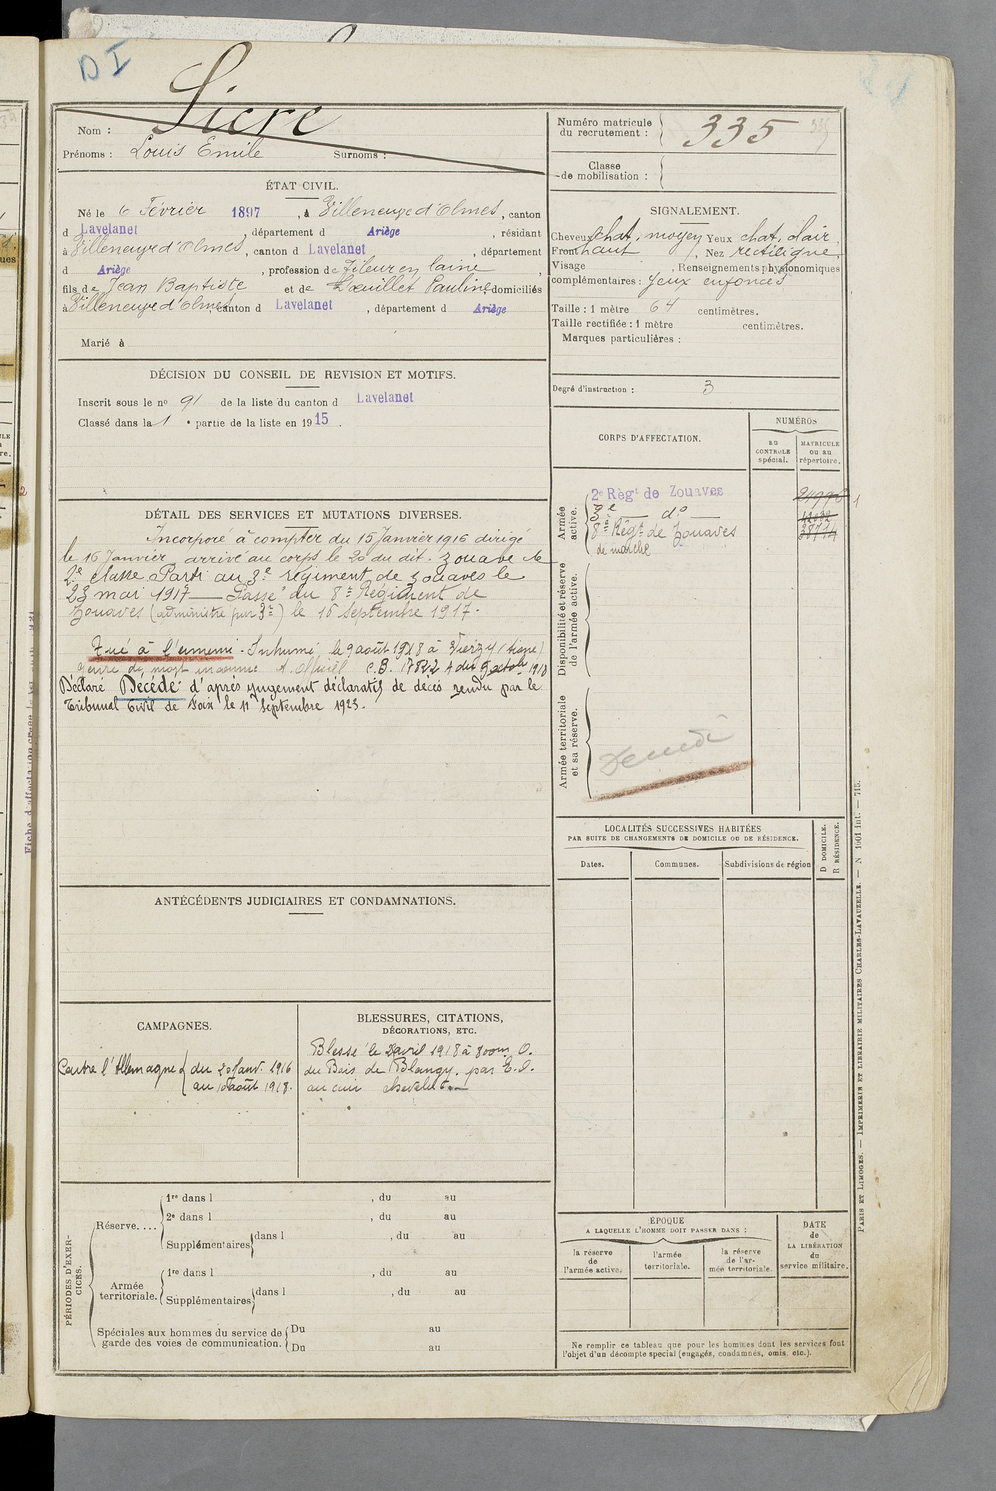 DI
Nom : Sicre
Prénoms : Louis Emile Surnoms :
ÉTAT CIVIL.
Né le 6 Février 1897, à Villeneuve d'Olmes, canton
d Lavelanet, département d Ariège, résidant
à Villeneuve d'Olmes, canton d Lavelanet, département
d Ariège, profession de fileur en laine,
fils de Jean Baptiste et de Pauline domiciliés
à Villeneuve d'Olmes, canton d Lavelanet, département d Ariège
Marié à
DÉCISION DU CONSEIL DE REVISION ET MOTIFS.
Inscrit sous le nº 91 de la liste du canton d Lavelanet
Classé dans la 1 e partie de la liste en 1915.
DÉTAIL DES SERVICES ET MUTATIONS DIVERSES.
Incorporé à compter du 15 Janvier 1916 dirigé
le 16 Janvier arrivé au corps le 20 du dit. Zouave de
2e classe Parti au 3e régiment de zouaves le
23 mai 1917 — Passé du 8e Régiment de
Zouaves (administré par 3e) le 16 Septembre 1917.
Tué à l'ennemi. Inhumé, le 9 août 1918 à Vierzy (Aisne)
genre de mort inconnu. A. Officiel C.B. du 9 octobre 1918
Déclaré Décédé d'après jugement déclaratif de décès rendu par le
Tribunal Civil de Foix le 11 Septembre 1923.
ANTÉCÉDENTS JUDICIAIRES ET CONDAMNATIONS.
CAMPAGNES.
Contre l'Allemagne { du 20 Janv. 1916
au 10 août 1918.
BLESSURES, CITATIONS,
DÉCORATIONS, ETC.
Blessé le 2 avril 1918 à 800m O.
du Bois de Blangy, par E.O.
au cuir chevelu
PÉRIODES D'EXERCICES.
Réserve....
1re dans l , du au
2e dans l , du au
Supplémentaires dans l , du au
Armée
territoriale.
1re dans l , du au
Supplémentaires dans l , du au
Spéciales aux hommes du service de
garde des voies de communication.
Du au
Du au
Numéro matricule
du recrutement : 335
Classe
de mobilisation :
SIGNALEMENT.
Cheveux chat. moyen Yeux chat. clair,
Front haut, Nez rectiligne,
Visage , Renseignements physionomiques
complémentaires : Yeux enfoncés
Taille : 1 mètre 64 centimètres.
Taille rectifiée : 1 mètre centimètres.
Marques particulières :
Degré d'instruction : 3
CORPS D'AFFECTATION.
NUMÉROS
AU
CONTROLE
spécial.
MATRICULE
OU AU
répertoire.
Armée
active.
2e Régt de Zouaves
3e — do —
8e Régt de Zouaves
de marche
Disponibilité et réserve
de l'armée active.
Armée territoriale
et sa réserve.
LOCALITÉS SUCCESSIVES HABITÉES
PAR SUITE DE CHANGEMENTS DE DOMICILE OU DE RÉSIDENCE.
Dates.
Communes.
Subdivisions de région
D DOMICILE.
R RÉSIDENCE.
ÉPOQUE
A LAQUELLE L'HOMME DOIT PASSER DANS :
la réserve
de
l'armée active.
l'armée
territoriale.
la réserve
de l'ar-
mée territoriale.
DATE
de
LA LIBÉRATION
du
service militaire.
Ne remplir ce tableau que pour les hommes dont les services font
l'objet d'un décompte spécial (engagés, condamnés, omis, etc.).
PARIS ET LIMOGES. — IMPRIMERIE ET LIBRAIRIE MILITAIRES CHARLES-LAVAUZELLE. —